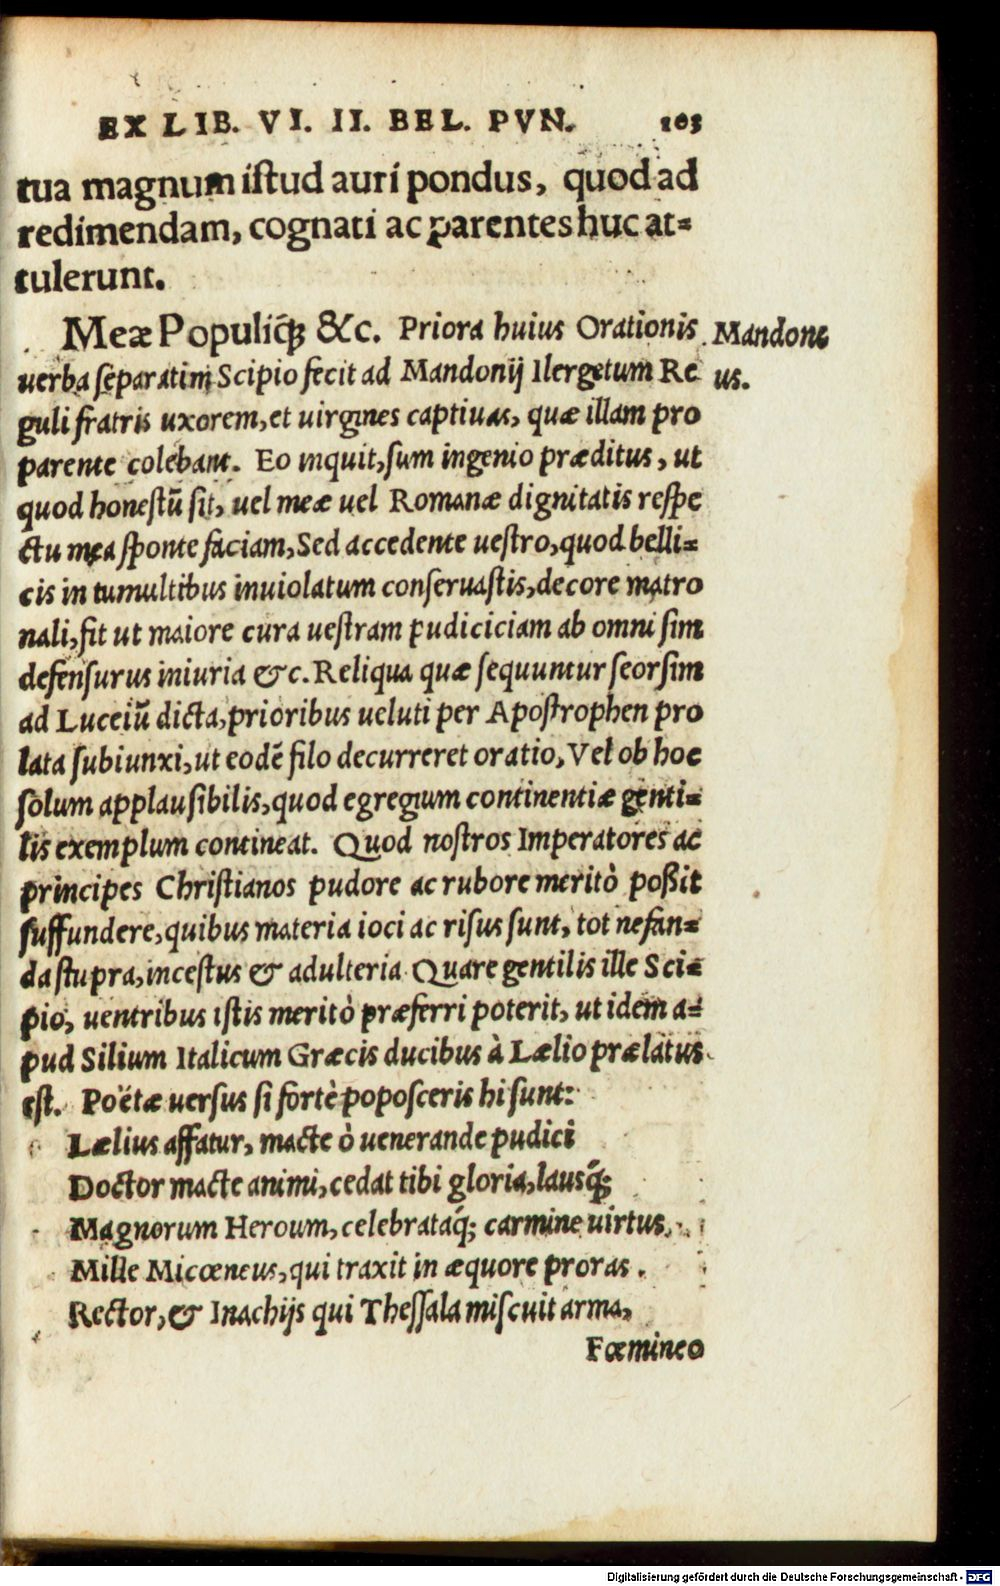 EX LIB. VI. II. BEL. PVN. 103
tua magnum istud auri pondus, quod ad
redimendam, cognati ac parentes huc at⸗
tulerunt.
Meæ Populiq̃ꝫ &c. Priora huius Orationis
Mandoni
us.
uerba separatim Scipio fecit ad Mandonij Ilergetum Re
guli fratris uxorem, et uirgines captiuas, quæ illam pro
parente colebant. Eo inquit, sum ingenio præditus, ut
quod honestũ sit, uel meæ uel Romanæ dignitatis respe
ctu mea sponte faciam, Sed accedente uestro, quod belli⸗
cis in tumultibus inuiolatum conseruastis, decore matro
nali, fit ut maiore cura uestram pudiciciam ab omni sim
defensurus iniuria &c. Reliqua quæ sequuntur seorsim
ad Luceiũ dicta, prioribus ueluti per Apostrophen pro
lata subiunxi, ut eodẽ filo decurreret oratio, Vel ob hoc
solum applausibilis, quod egregium continentiæ genti⸗
lis exemplum contineat. Quod nostros Imperatores ac
principes Christianos pudore ac rubore meritò poßit
suffundere, quibus materia ioci ac risus sunt, tot nefan⸗
da stupra, incestus & adulteria. Quare gentilis ille Sci⸗
pio, uentribus istis meritò præferri poterit, ut idem a⸗
pud Silium Italicum Græcis ducibus à Lælio prælatus
est. Poëtæ uersus si fortè poposceris hi sunt:
Lælius affatur, macte ò uenerande pudici
Doctor macte animi, cedat tibi gloria, lausq̃;
Magnorum Heroum, celebrataq́; carmine uirtus.
Mille Micœneus, qui traxit in æquore proras.
Rector, & Inachijs qui Thessala miscuit arma,
Fœmineo
Digitalisierung gefördert durch die Deutsche Forschungsgemeinschaft - DFG